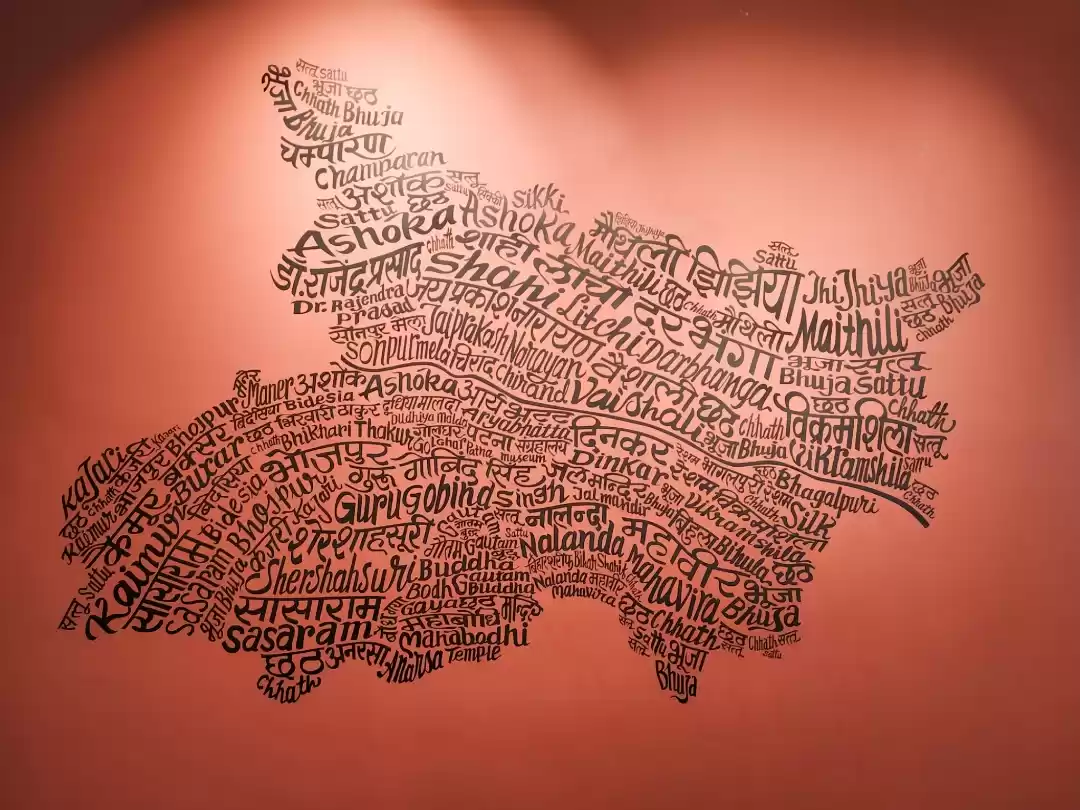 सत्तू Sattu
भूजा छठ
भूजा Chhath Bhuja
Bhuja
चम्पारण
Champaran
अशोक सत्तू
Sattu छठ Sattu सिक्की Sikki
Ashoka Chhath Ashoka
डॉ. राजेंद्र प्रसाद शाही लीची मैथिली झिझिया सत्तू Sattu JhiJhiya भूजा Bhuja भूजा
Dr. Rajendra Prasad Shahi Litchi Maithili छठ Chhath मैथिली Maithili सत्तू छठ Chhath Bhuja
जयप्रकाश नारायण दरभंगा
सोनपुर मेला Jaiprakash Narayan Darbhanga भूजा सत्तू
Sonpur mela चिरांद Chirand वैशाली छठ Bhuja Sattu
Maner अशोक Ashoka आर्यभट्ट Vaishali Chhath छठ Chhath
Bhojpur बिदेसिया Bidesia दुधिया मालदा Aryabhatta भूजा Bhuja विक्रमशिला सत्तू
Kajari कजरी बक्सर छठ भिखारी ठाकुर Dudhiya Malda दिनकर Vikramshila Sattu
छठ Chhath भोजपुर Buxar Chhath Bhikhari Thakur गोलघर पटना संग्रहालय Dinkar रेशम भागलपुरी छठ Bhagalpuri छठ Chhath
Kaimur कैमूर बिदेसिया भोजपुर Golghar Patna Museum रेशम Silk
Bidesia गुरु गोबिंद सिंह जल मन्दिर भूजा विक्रमशिला
सत्तू Sattu Kaimur Bhojpuri Kajari Guru Gobind Singh Jal mandir Bhuja बिहुला Vikramshila
सासाराम कजरी शेरशाह सूरी सत्तू Sattu नालन्दा महावीर Bihula छठ
Sasaram भूजा Bhuja Shershah suri गौतम बुद्ध Gautam Buddha Nalanda Mahavira भूजा Bhuja
सासाराम Bodh Gaya Gautam Buddha Nalanda महावीर Mahavira छठ Chhath
Sasaram छठ महाबोधि मन्दिर Chhath छठ सत्तू
छठ अनरसा Mahabodhi Sattu भूजा Chhath Sattu
Chhath Anarsa Temple Bhuja